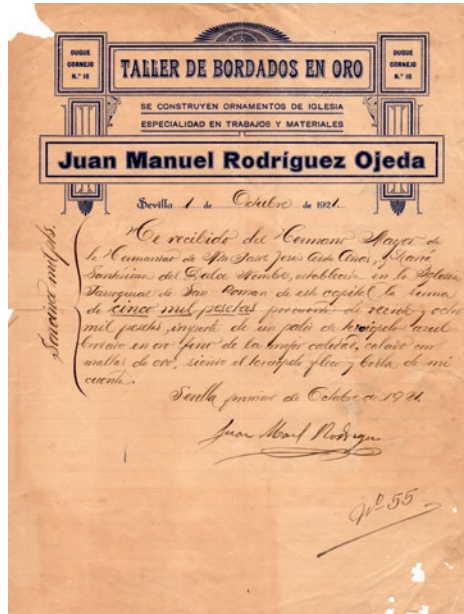 DUQUE
CORNEJO
N.º 18
TALLER DE BORDADOS EN ORO
DUQUE
CORNEJO
N.º 18
SE CONSTRUYEN ORNAMENTOS DE IGLESIA
ESPECIALIDAD EN TRABAJOS Y MATERIALES
Juan Manuel Rodríguez Ojeda
Sevilla 1 de Octubre de 1921.
Son cinco mil pts.
He recibido del Hermano Mayor de
la Hermandad de Ntro Padre Jesús de los, y María
Santísima del Dulce Nombre, establecida en la Iglesia
Parroquial de San Roman de esta capital la suma
de cinco mil pesetas por cuenta de veinte y ocho
mil pesetas, importe de un palio de terciopelo azul
bordado en oro fino de la mejor calidad, calado con
mallas de oro, siendo el terciopelo fleco y borla de mi
cuenta.
Sevilla primero de Octubre de 1921.
Juan Manl Rodriguez
Nº 55